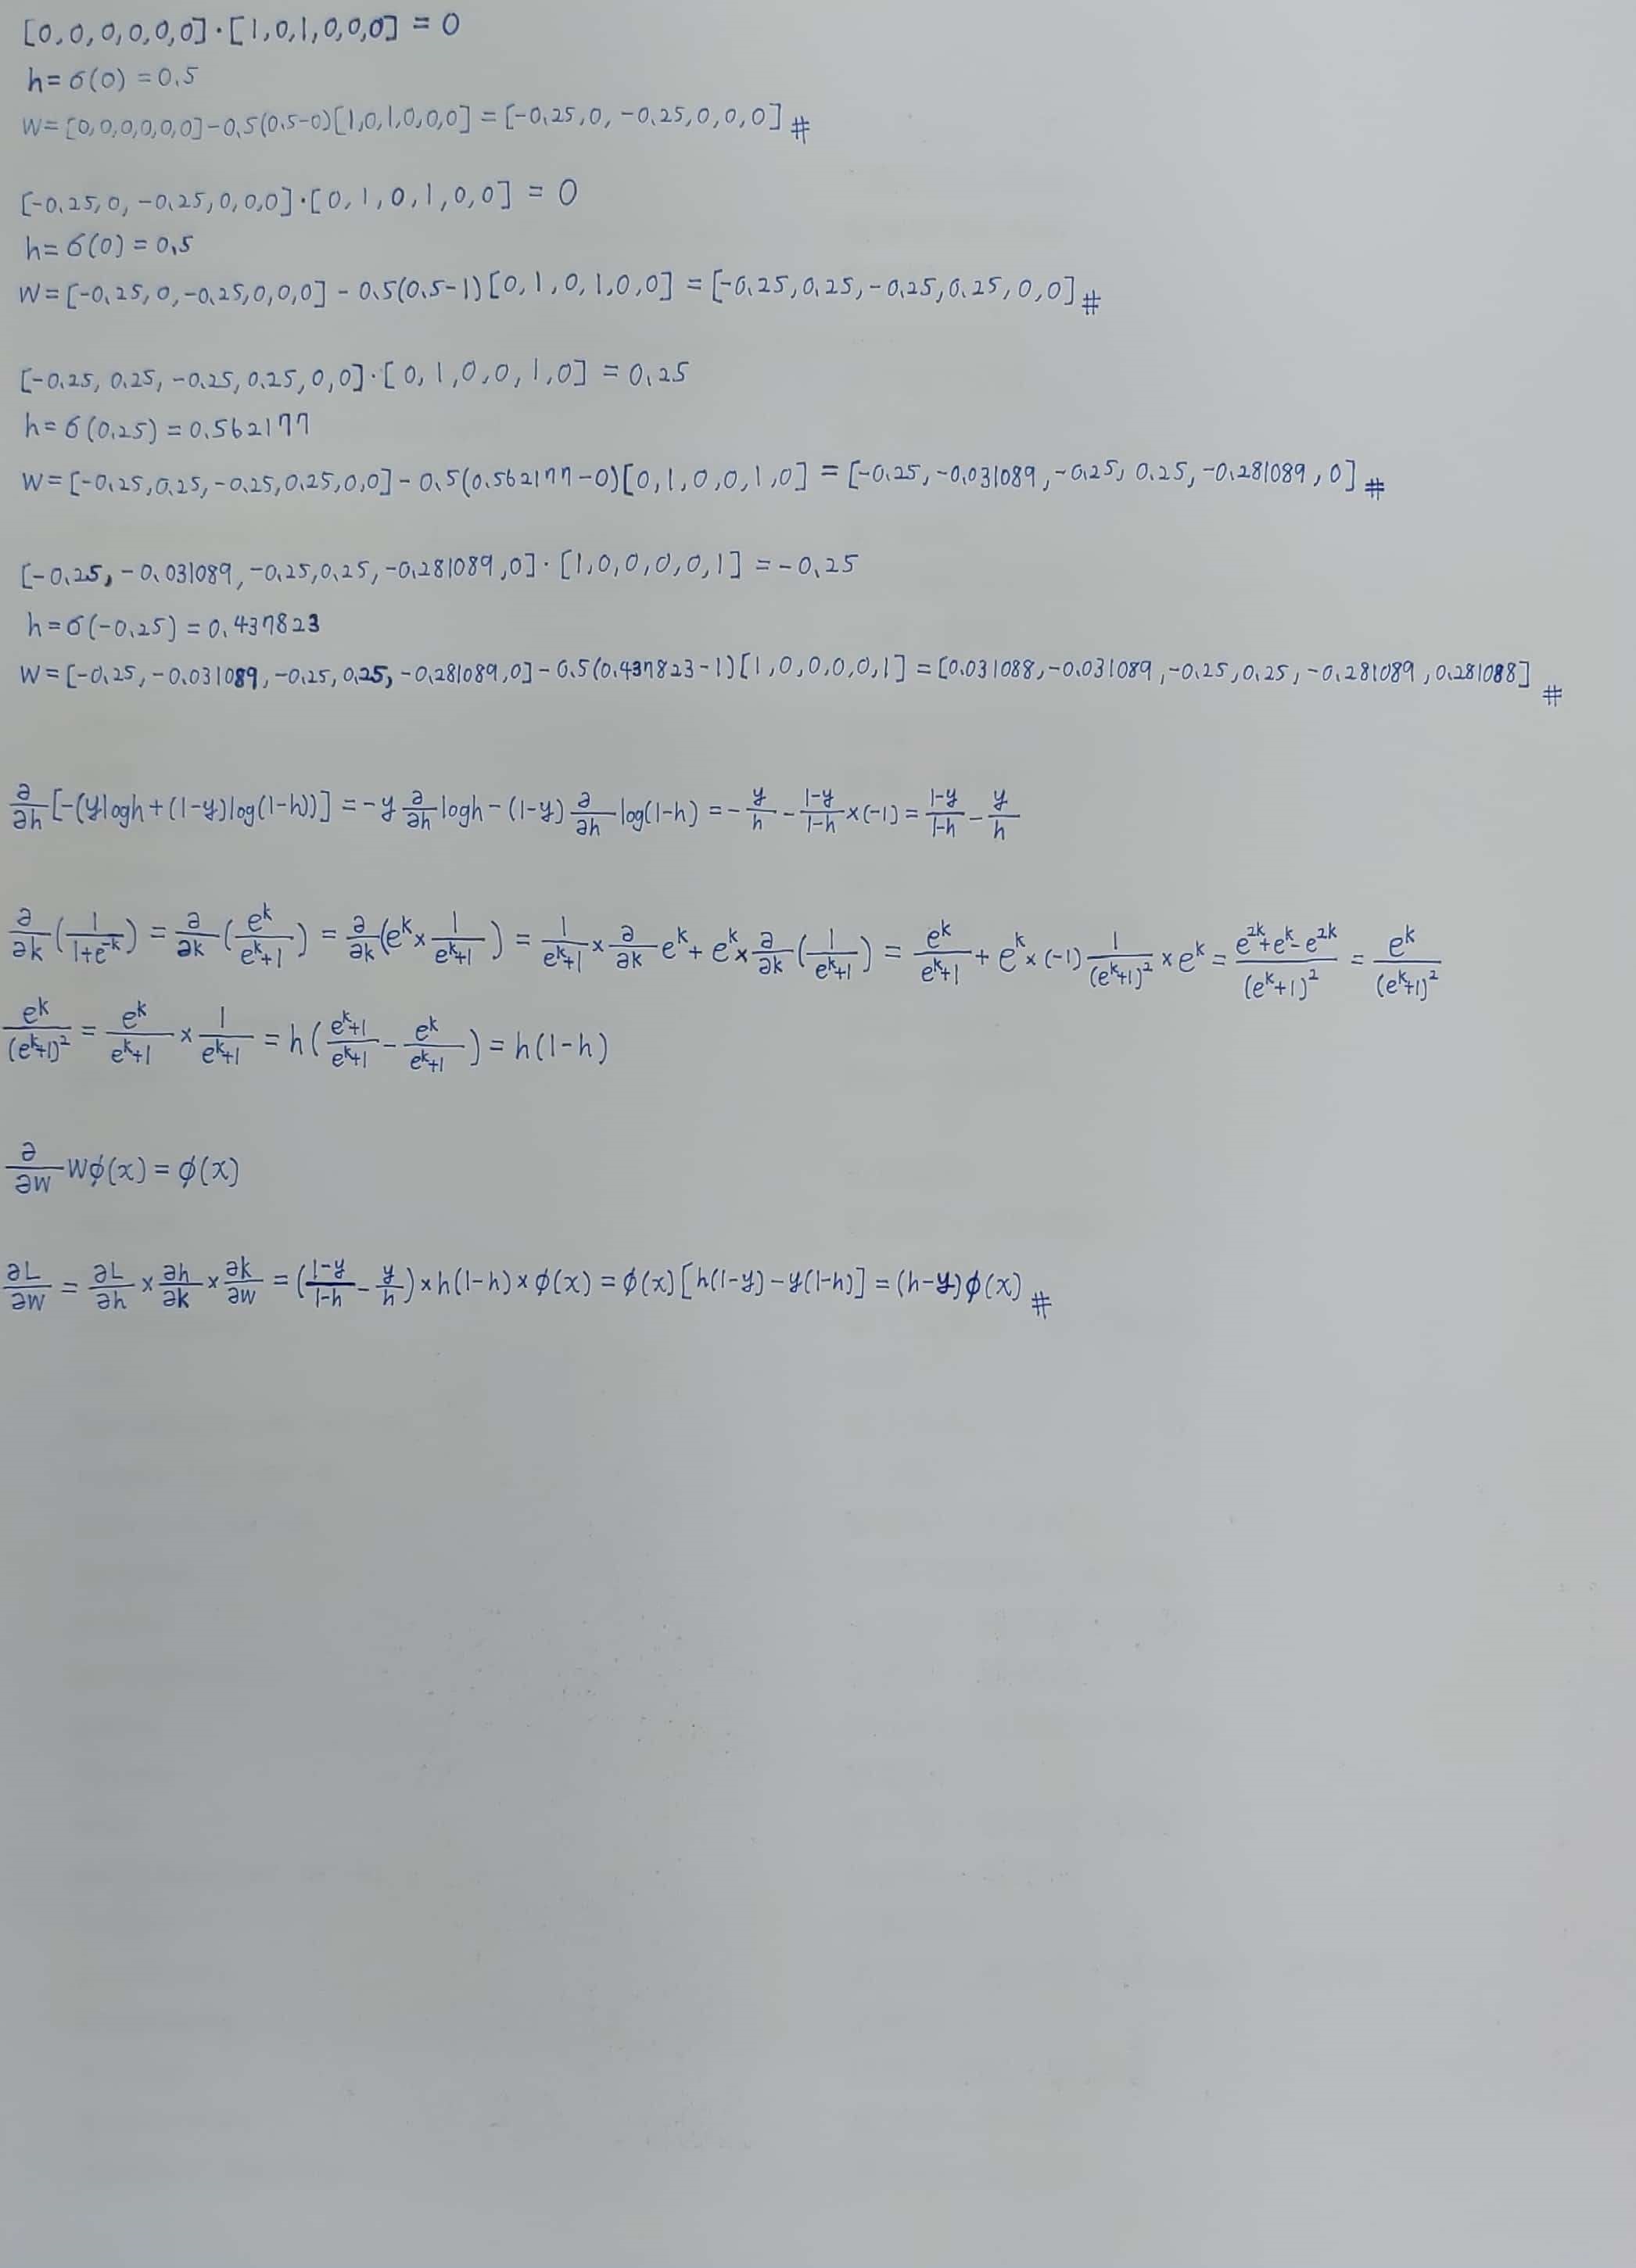 [0,0,0,0,0,0]·[1,0,1,0,0,0] = 0
h=σ(0)=0.5
W=[0,0,0,0,0,0]-0.5(0.5-0)[1,0,1,0,0,0]=[-0.25,0,-0.25,0,0,0] #
[-0.25,0,-0.25,0,0,0]·[0,1,0,1,0,0] = 0
h=σ(0)=0.5
W=[-0.25,0,-0.25,0,0,0]-0.5(0.5-1)[0,1,0,1,0,0]=[-0.25,0.25,-0.25,0.25,0,0] #
[-0.25,0.25,-0.25,0.25,0,0]·[0,1,0,0,1,0] = 0.25
h=σ(0.25)=0.562177
W=[-0.25,0.25,-0.25,0.25,0,0]-0.5(0.562177-0)[0,1,0,0,1,0]=[-0.25,-0.031089,-0.25,0.25,-0.281089,0] #
[-0.25,-0.031089,-0.25,0.25,-0.281089,0]·[1,0,0,0,0,1]=-0.25
h=σ(-0.25)=0.437823
W=[-0.25,-0.031089,-0.25,0.25,-0.281089,0]-0.5(0.437823-1)[1,0,0,0,0,1]=[0.031088,-0.031089,-0.25,0.25,-0.281089,0.281088] #
∂/∂h [-(ylogh+(1-y)log(1-h))] = -y ∂/∂h logh-(1-y) ∂/∂h log(1-h) = -y/h - (1-y)/(1-h) ×(-1) = (1-y)/(1-h) - y/h
∂/∂k (1/(1+e^-k)) = ∂/∂k (e^k/(e^k+1)) = ∂/∂k (e^k × 1/(e^k+1)) = 1/(e^k+1) × ∂/∂k e^k + e^k × ∂/∂k (1/(e^k+1)) = e^k/(e^k+1) + e^k ×(-1) 1/(e^k+1)^2 × e^k = (e^2k+e^k-e^2k)/(e^k+1)^2 = e^k/(e^k+1)^2
e^k/(e^k+1)^2 = e^k/(e^k+1) × 1/(e^k+1) = h((e^k+1)/(e^k+1) - e^k/(e^k+1)) = h(1-h)
∂/∂W Wϕ(x) = ϕ(x)
∂L/∂W = ∂L/∂h × ∂h/∂k × ∂k/∂W = ((1-y)/(1-h) - y/h) × h(1-h) × ϕ(x) = ϕ(x)[h(1-y)-y(1-h)] = (h-y)ϕ(x) #